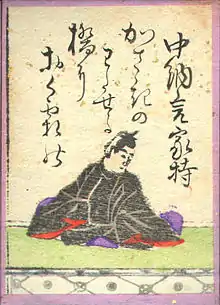 中納言家持
かさゝきの
わたせる
橋に
おくしもの